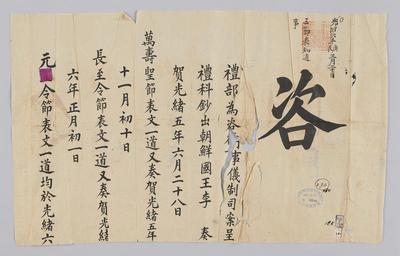 咨
禮部為咨行事儀制司案呈
禮科鈔出朝鮮國王李　奏
賀光緒五年六月二十八日
萬壽聖節表文一道又奏賀光緒五年
十一月初十日
長至令節表文一道又奏賀光緒
六年正月初一日
元　令節表文一道均於光緒六